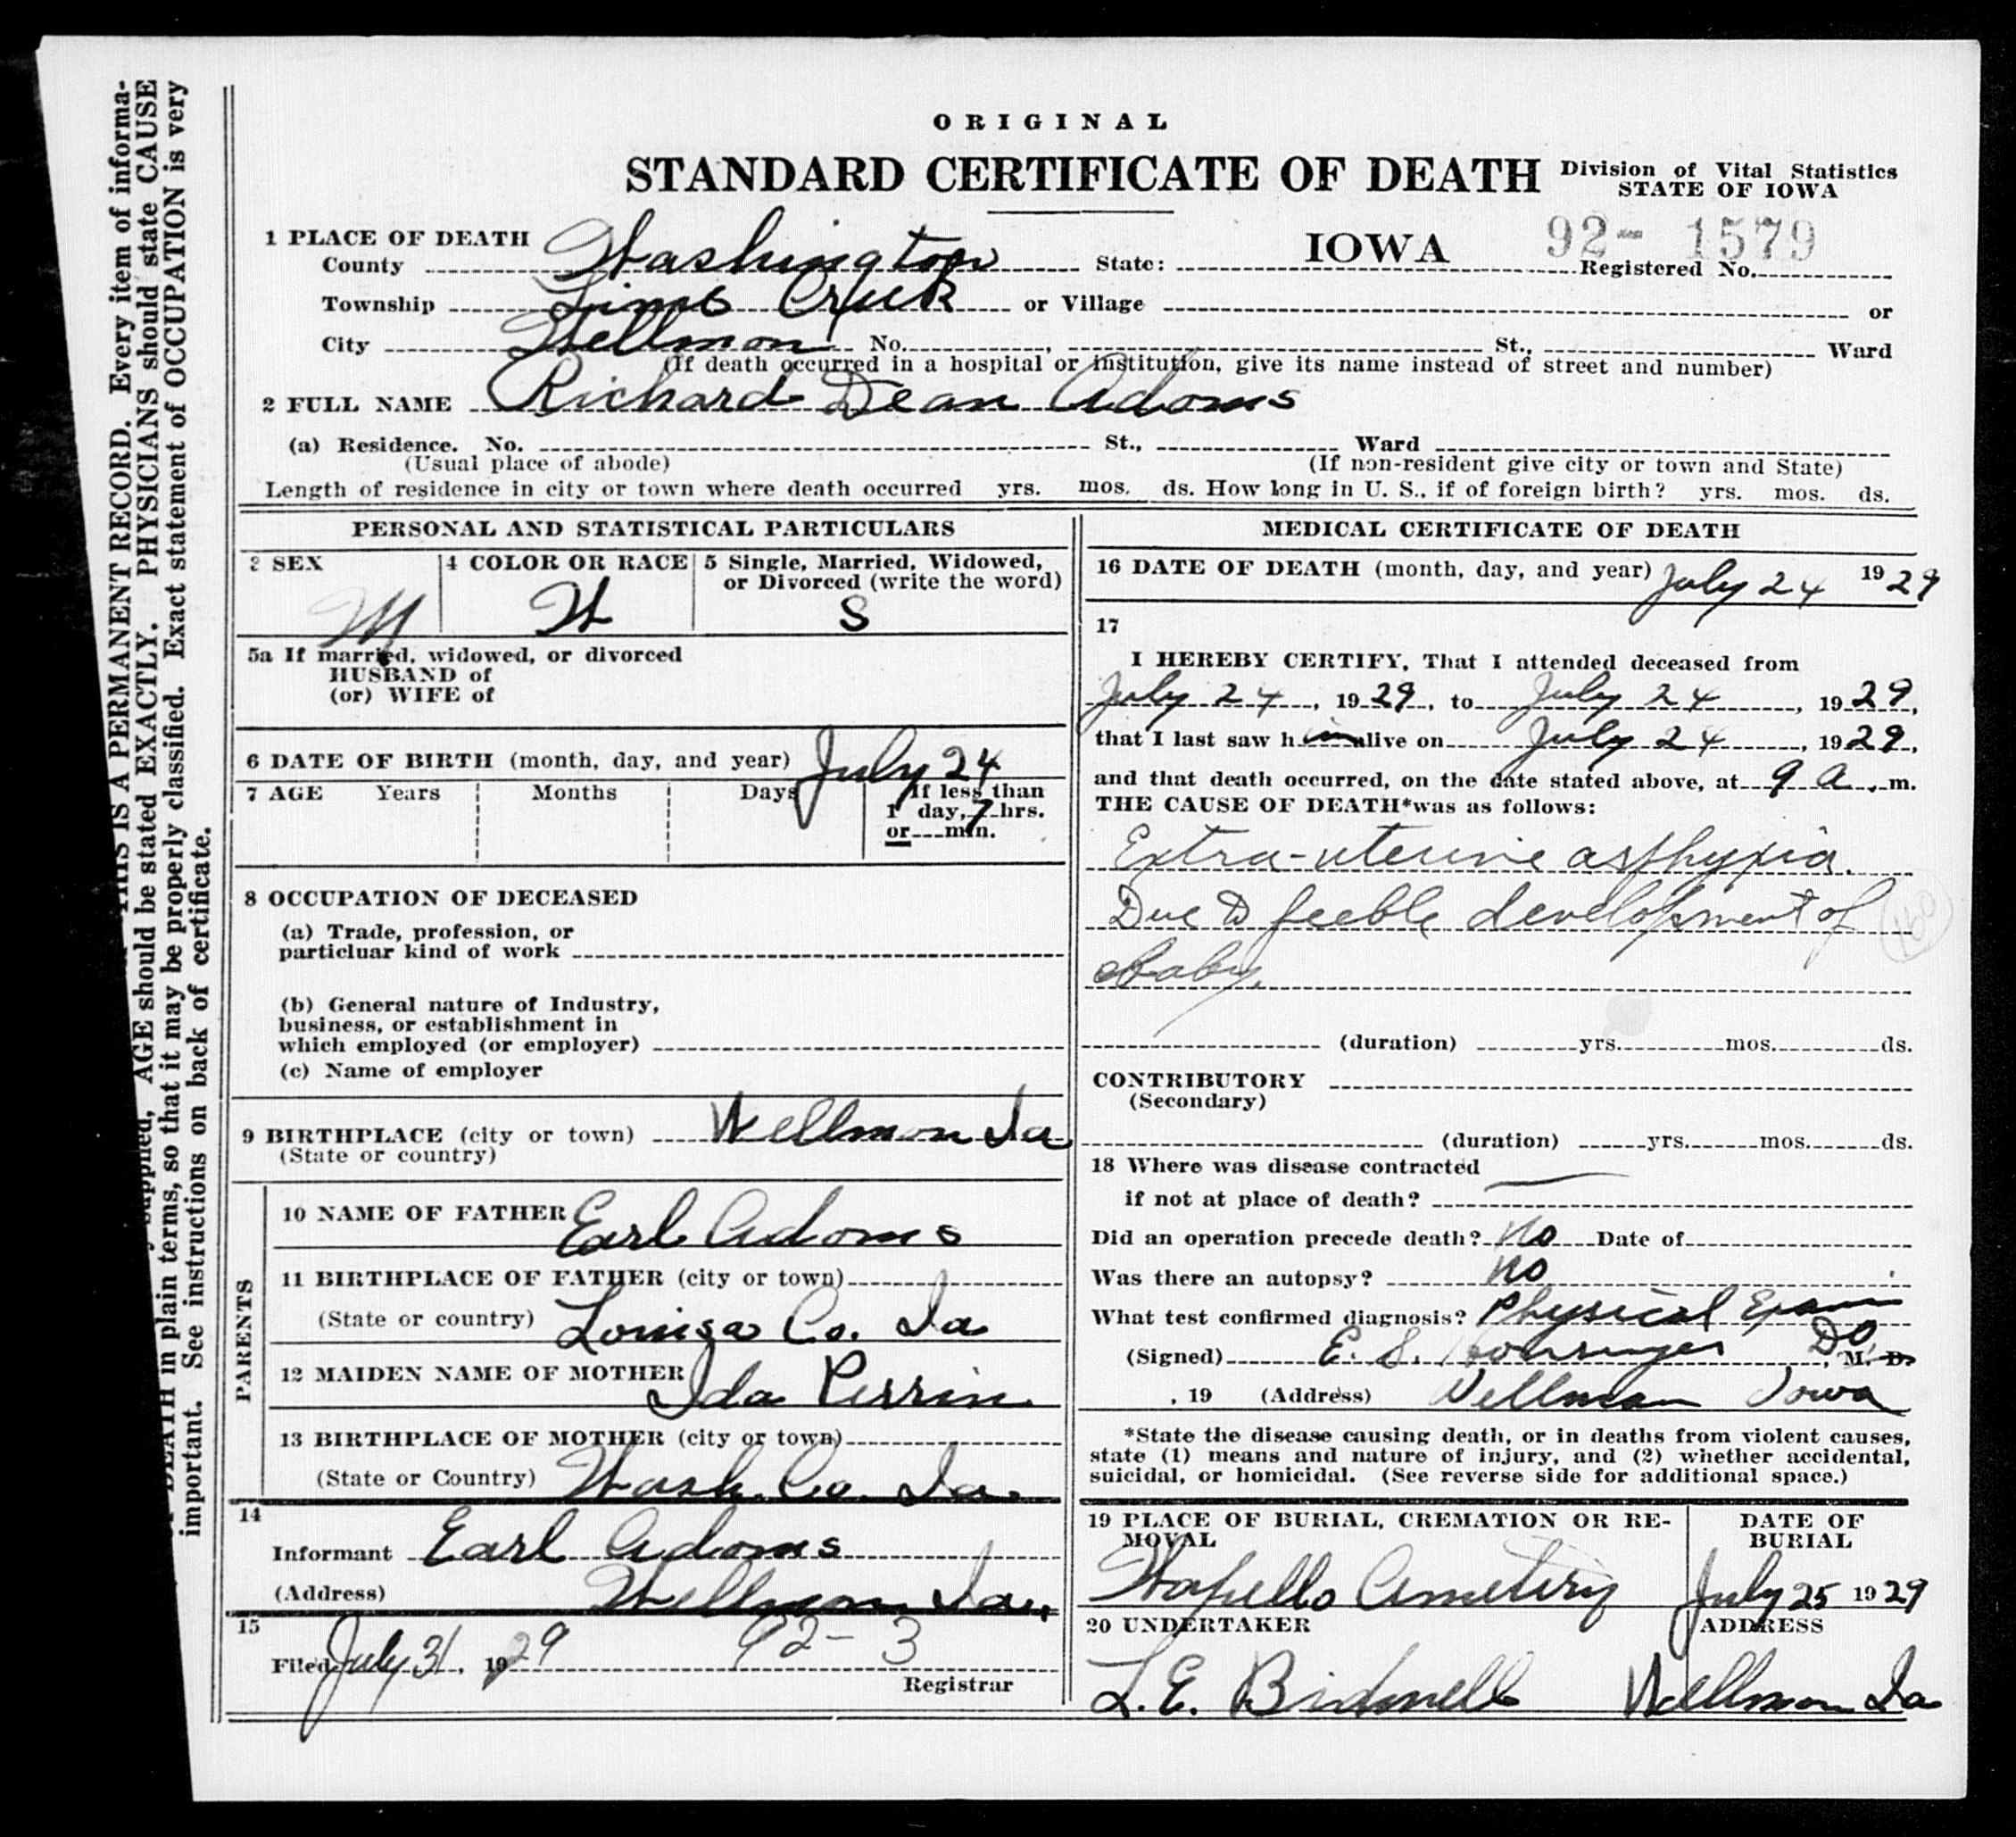 ORIGINAL
STANDARD CERTIFICATE OF DEATH
Division of Vital Statistics
STATE OF IOWA
92- 1579
1 PLACE OF DEATH
County Washington State: IOWA Registered No.
Township Lime Creek or Village or
City Wellman No. , St., Ward
(If death occurred in a hospital or institution, give its name instead of street and number)
2 FULL NAME Richard Dean Adams
(a) Residence. No. St., Ward
(Usual place of abode) (If non-resident give city or town and State)
Length of residence in city or town where death occurred yrs. mos. ds. How long in U. S., if of foreign birth? yrs. mos. ds.
PERSONAL AND STATISTICAL PARTICULARS
3 SEX
M
4 COLOR OR RACE
W
5 Single, Married, Widowed,
or Divorced (write the word)
S
5a If married, widowed, or divorced
HUSBAND of
(or) WIFE of
6 DATE OF BIRTH (month, day, and year) July 24
7 AGE Years Months Days If less than
1 day, 7 hrs.
or min.
8 OCCUPATION OF DECEASED
(a) Trade, profession, or
particluar kind of work
(b) General nature of Industry,
business, or establishment in
which employed (or employer)
(c) Name of employer
9 BIRTHPLACE (city or town) Wellman Ia
(State or country)
PARENTS
10 NAME OF FATHER Earl Adams
11 BIRTHPLACE OF FATHER (city or town)
(State or country) Louisa Co. Ia
12 MAIDEN NAME OF MOTHER
Ida Perrin
13 BIRTHPLACE OF MOTHER (city or town)
(State or Country) Wash. Co. Ia.
14
Informant Earl Adams
(Address) Wellman Ia.
15
Filed July 31, 1929 92-3
Registrar
MEDICAL CERTIFICATE OF DEATH
16 DATE OF DEATH (month, day, and year) July 24 1929
17
I HEREBY CERTIFY, That I attended deceased from
July 24, 1929, to July 24, 1929,
that I last saw him alive on July 24, 1929,
and that death occurred, on the date stated above, at 9 a.m.
THE CAUSE OF DEATH*was as follows:
Extra-uterine asphyxia.
Due to feeble development of
Baby.
160
(duration) yrs. mos. ds.
CONTRIBUTORY
(Secondary)
(duration) yrs. mos. ds.
18 Where was disease contracted
if not at place of death?
Did an operation precede death? No Date of
Was there an autopsy? No
What test confirmed diagnosis? Physical Exam
(Signed) E. S. DO, M. D.
, 19 (Address) Wellman Iowa
*State the disease causing death, or in deaths from violent causes,
state (1) means and nature of injury, and (2) whether accidental,
suicidal, or homicidal. (See reverse side for additional space.)
19 PLACE OF BURIAL, CREMATION OR RE-
MOVAL
Wapello Cemetery
DATE OF
BURIAL
July 25 1929
20 UNDERTAKER
L. E. Bidwell
ADDRESS
Wellman Ia
THIS IS A PERMANENT RECORD. Every item of informa-
supplied, AGE should be stated EXACTLY. PHYSICIANS should state CAUSE
DEATH in plain terms, so that it may be properly classified. Exact statement of OCCUPATION is very
important. See instructions on back of certificate.